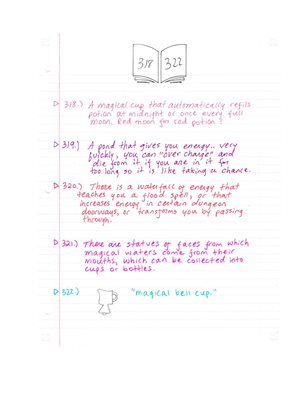 318 322
▷ 318.) A magical cup that automatically refils
potion at midnight or once every full
moon. Red moon for red potion?
319.) A pond that gives you energy.. very
quickly, you can "over charge" and
die from it if you are in it for
too long so it is like taking a chance.
▷ 320.) There is a waterfall of energy that
teaches you a flood spell, or that
increases energy in certain dungeon
doorways, or transforms you by passing
through.
▷ 321.) There are statues of faces from which
magical waters come from their
mouths, which can be collected into
cups or bottles.
▷ 322.) "magical bell cup."